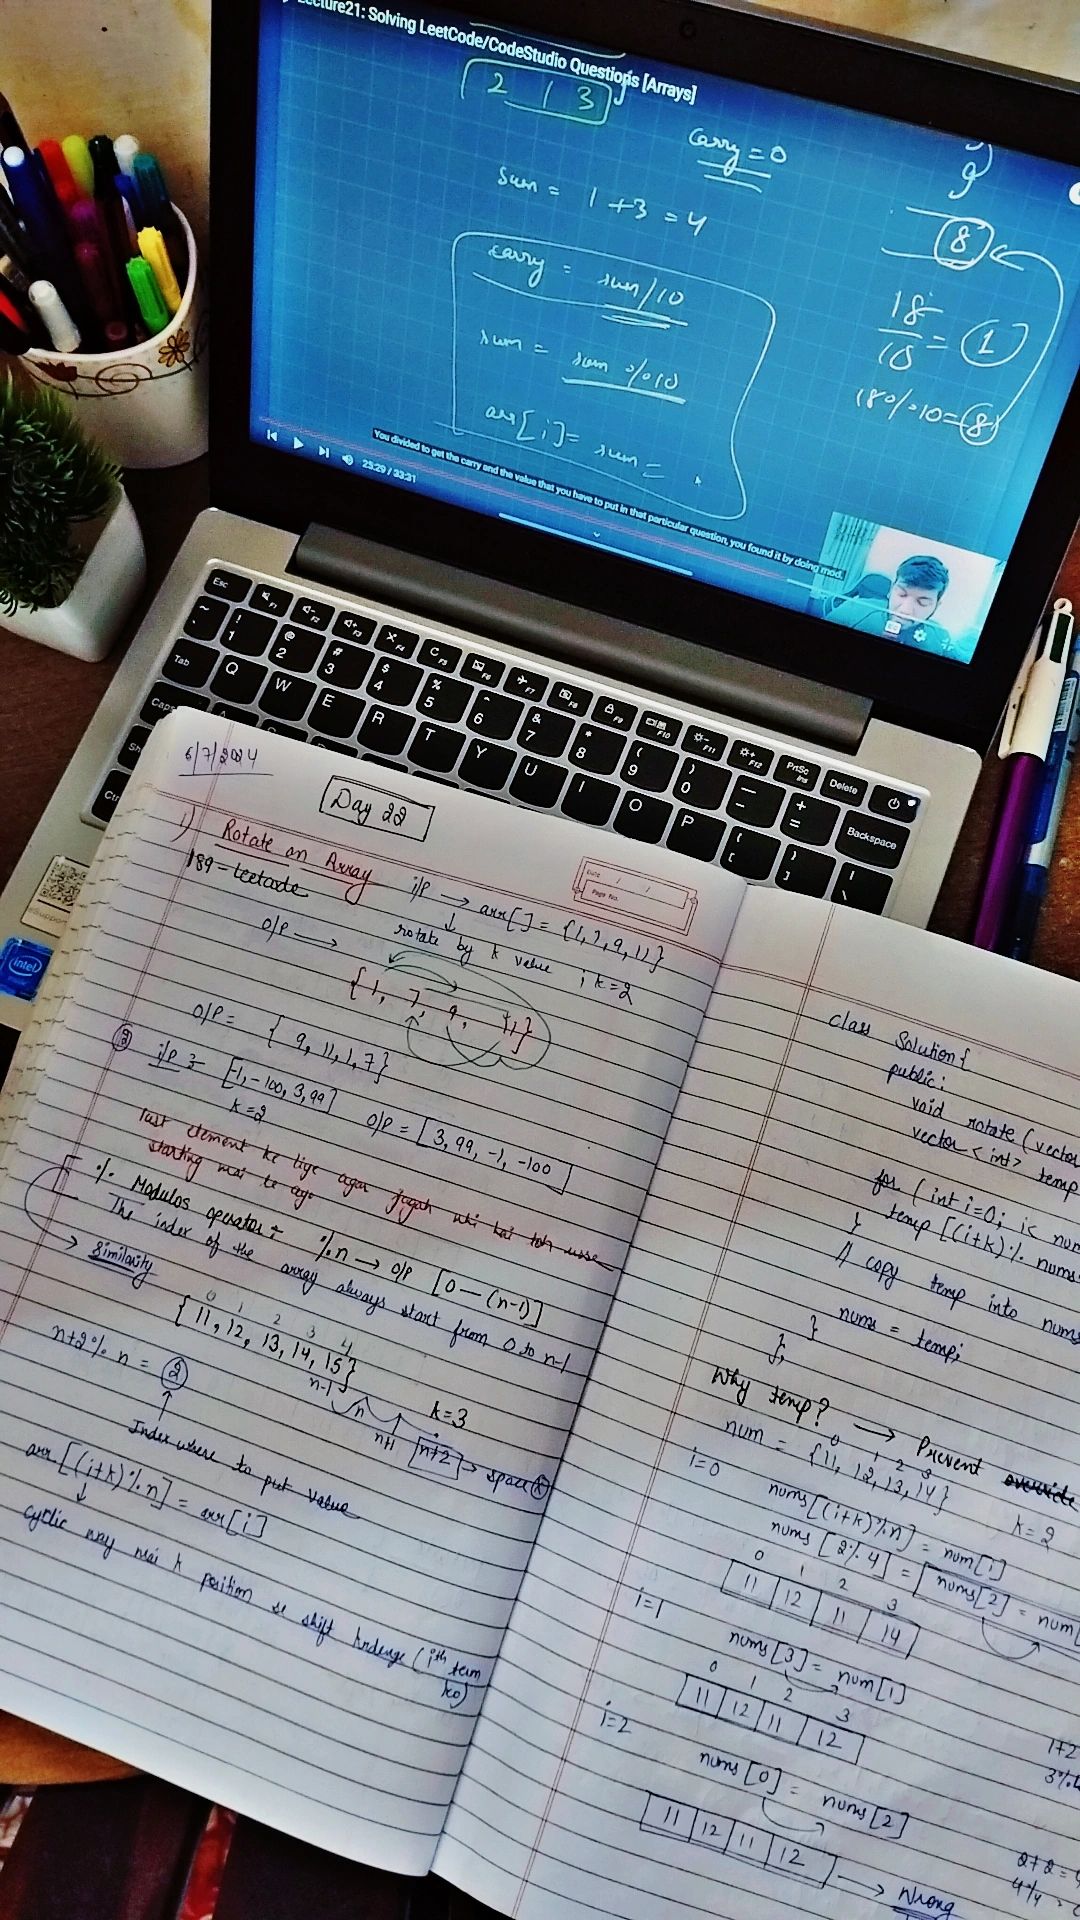 Lecture21: Solving LeetCode/CodeStudio Questions [Arrays]
2 1 3
carry = 0
sum = 1 + 3 = 4
carry = sum/10
sum = sum % 10
arr[i] = sum =
9
8
18/10 = 1
18 % 10 = 8
You divided to get the carry and the value that you have to put in that particular question, you found it by doing mod.
25:29 / 33:31
Esc F1 F2 F3 F4 F5 F6 F7 F8 F9 F10 F11 F12 PrtSc Ins Delete
~ ! 1 @ 2 # 3 $ 4 % 5 ^ 6 & 7 * 8 ( 9 ) 0 — - + = Backspace
Tab Q W E R T Y U I O P { [ } ] | \
Caps
Sh
Ctr
intel
6/7/2024
Day 22
1) Rotate an Array
189 - leetcode
i/p → arr[] = {1, 7, 9, 11}
rotate by k value ; k=2
Date / /
Page No.
O/P →
{1, 7, 9, 11}
O/P = {9, 11, 1, 7}
2 i/p = [-1, -100, 3, 99]
k=2
O/P = [3, 99, -1, -100]
last element ke liye agar jagah nhi hai toh usse
starting mai le ayo
% Modulos operator ÷ %n → O/P [0 — (n-1)]
The index of the array always start from 0 to n-1
→ Similarity
0 1 2 3 4
{11, 12, 13, 14, 15}
n-1 n n+1 n+2 → space
k=3
n+2 % n = 2
Index where to put value
arr[(i+k)%n] = arr[i]
cyclic way mai k position se shift krdenge (ith term
ko)
class Solution {
public:
void rotate (vector
vector <int> temp
for (int i=0; i< num
temp [(i+k)% nums
}
// copy temp into nums
nums = temp;
}
};
Why temp? → Prevent override
0 1 2 3
num = {11, 12, 13, 14}
k=2
i=0
nums[(i+k)%n] = num[i]
nums[2%4] = nums[2] = num[
0 1 2 3
11 12 11 14
i=1
nums[3] = num[1]
0 1 2 3
11 12 11 12
1+2
3%4
i=2
nums[0] = nums[2]
11 12 11 12 → Wrong
2+2 =
4%4 =